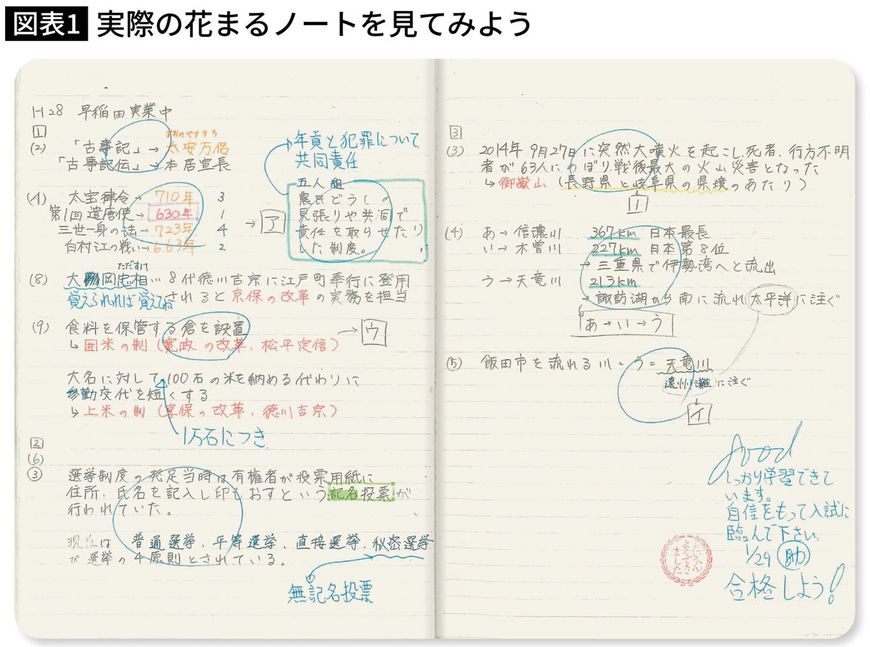 図表1 実際の花まるノートを見てみよう
H28 早稲田実業中
1
(2) 「古事記」→ 太安万侶
おおのやすまろ
「古事記伝」→ 本居宣長
(4) 太宝律令→ 710年 3
第1回遣唐使→ 630年 1
三世一身の法→ 723年 4
白村江の戦い→ 663年 2
→ ア
五人組
農民どうしの
見張りや共同で
責任を取らせたり
した制度。
年貢と犯罪について
共同責任
(8) 大岡忠相… 8代徳川吉宗に江戸町奉行に登用
ただすけ
覚えられれば覚えてね
されると享保の改革の実務を担当
(9) 食料を保管する倉を設置
→ ウ
↳囲米の制 (寛政の改革、松平定信)
大名に対して100石の米を納める代わりに
参勤交代を短くする
↳上米の制 (享保の改革、徳川吉宗)
1万石につき
2
(6)
③ 選挙制度の発足当時は有権者が投票用紙に
住所、氏名を記入し印もおすという記名投票が
行われていた。
現在は 普通選挙、平等選挙、直接選挙、秘密選挙
が選挙の4原則とされている。
無記名投票
3
(3) 2014年9月27日に突然大噴火を起こし死者、行方不明
者が63人にのぼり戦後最大の火山災害となった
↳御嶽山 (長野県と岐阜県の県境のあたり)
イ
(4) あ→信濃川 367km 日本最長
い→木曽川 227km 日本第8位
→三重県で伊勢湾へと流出
う→天竜川 213km
→諏訪湖から南に流れ太平洋に注ぐ
あ→い→う
⑤ 飯田市を流れる川=う=天竜川
遠州灘に注ぐ
イ
good
しっかり学習できて
います。
自信をもって入試に
臨んで下さい。
1/29 助
合格しよう!
たいへん
よくでき
ました